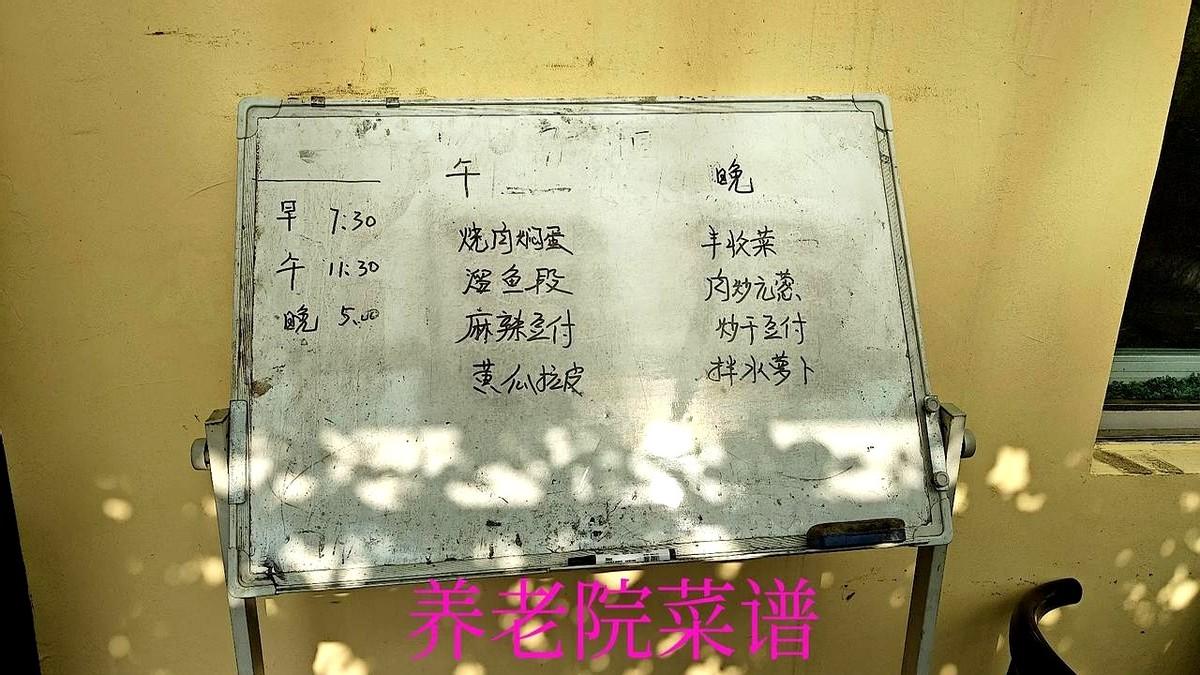 早 7:30
午 11:30
晚 5:00
午
烧肉焖蛋
溜鱼段
麻辣豆付
黄瓜拉皮
晚
丰收菜
肉炒元葱
炒干豆付
拌水萝卜
养老院菜谱